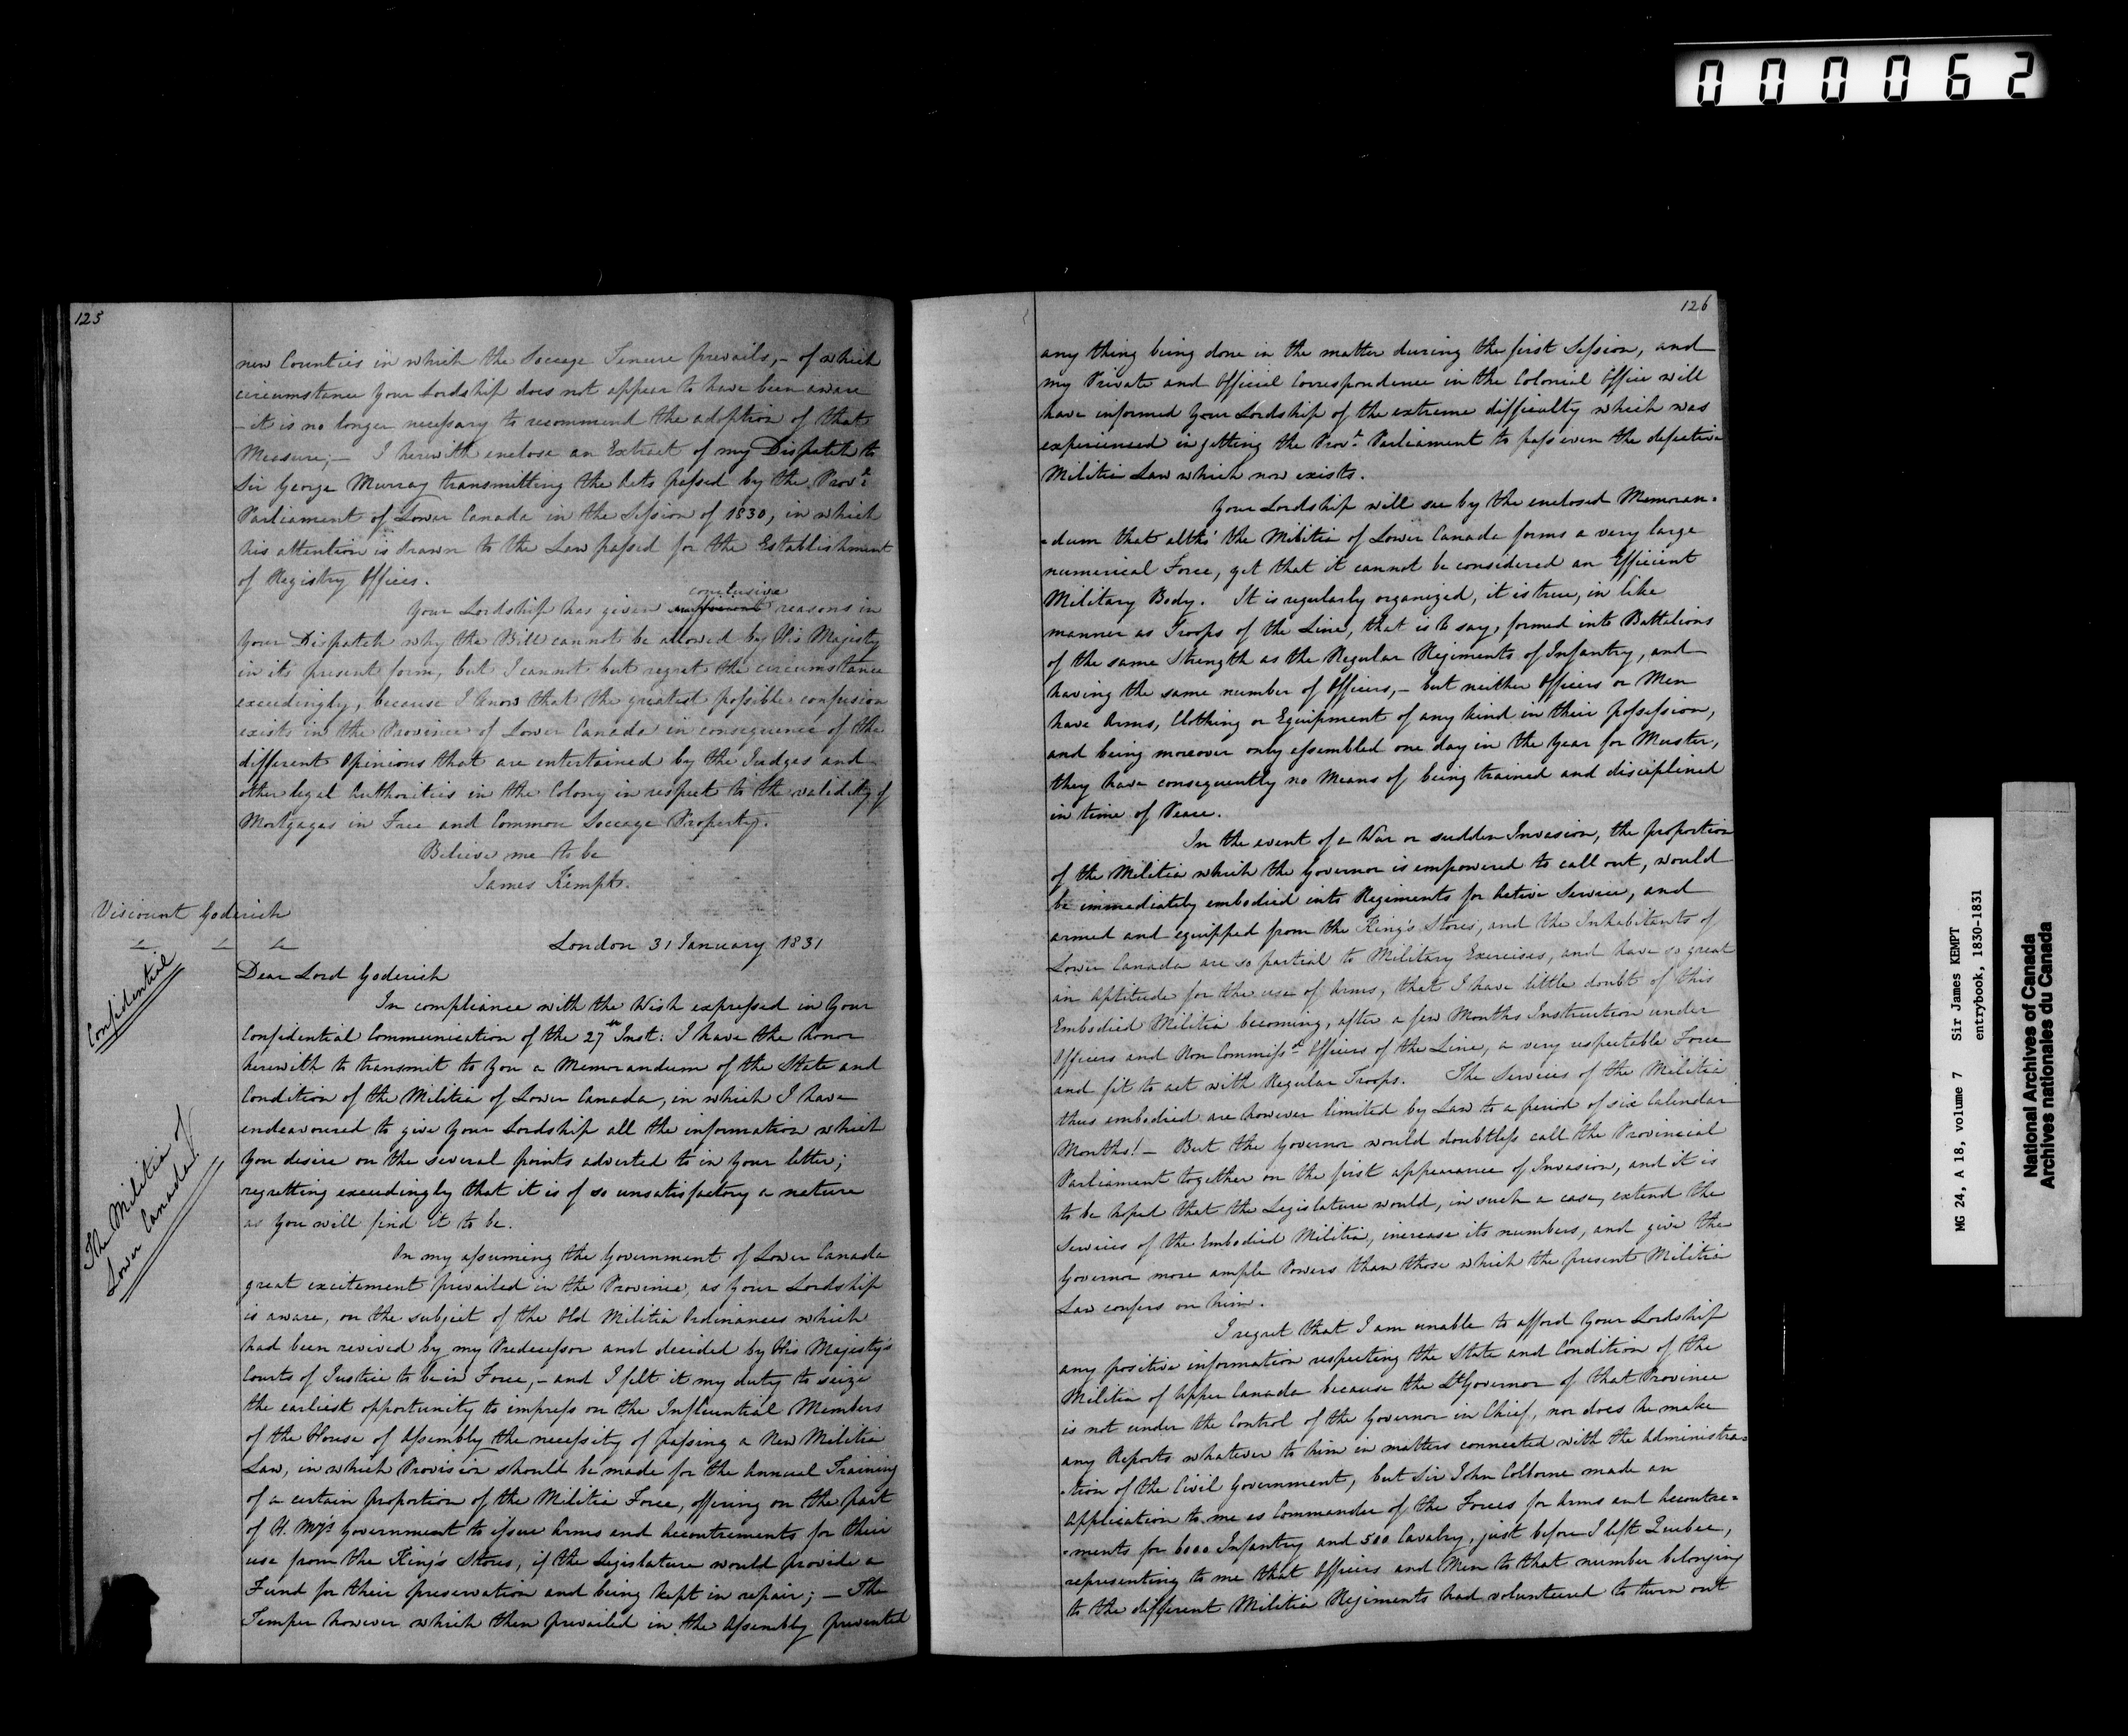 000062
125
new Counties in which the Soccage Tenure prevails,- of which
circumstance Your Lordship does not appear to have been aware
- it is no longer necessary to recommend the adoption of that
Measure;- I herewith enclose an Extract of my Dispatch to
Sir George Murray transmitting the Acts passed by the Provl.
Parliament of Lower Canada in the Session of 1830, in which
his attention is drawn to the Law passed for the Establishment
of Registry Offices.
conclusive
Your Lordship has given sufficient reasons in
Your Dispatch why the Bill cannot be allowed by His Majesty
in its present form, but I cannot but regret the circumstance
exceedingly, because I know that the greatest possible confusion
exists in the Province of Lower Canada in consequence of the
different Opinions that are entertained by the Judges and
other legal Authorities in the Colony in respect to the validity of
Mortgages in Free and Common Soccage Property.
Believe me to be
James Kempt.
Viscount Goderich
London 31 January 1831
Confidential
Dear Lord Goderich
In compliance with the Wish expressed in Your
Confidential Communication of the 27th Inst: I have the honor
herewith to transmit to You a Memorandum of the State and
Condition of the Militia of Lower Canada, in which I have
endeavoured to give Your Lordship all the information which
You desire on the several points adverted to in Your letter;
regretting exceedingly that it is of so unsatisfactory a nature
as You will find it to be.
The Militia of
Lower Canada
On my assuming the Government of Lower Canada
great excitement prevailed in the Province, as Your Lordship
is aware, on the subject of the Old Militia Ordinances which
had been revived by my Predecessor and decided by His Majesty's
Courts of Justice to be in Force,- and I felt it my duty to seize
the earliest opportunity to impress on the Influential Members
of the House of Assembly the necessity of passing a New Militia
Law, in which Provision should be made for the Annual Training
of a certain proportion of the Militia Force, offering on the part
of H. My's Government to issue Arms and Accoutrements for their
use from the King's Stores, if the Legislature would provide a
Fund for their preservation and being kept in repair;- The
Temper however which then prevailed in the Assembly prevented
126
any thing being done in the matter during the first Session, and
my Private and Official Correspondence in the Colonial Office will
have informed Your Lordship of the extreme difficulty which was
experienced in getting the Provl. Parliament to pass even the defective
Militia Law which now exists.
Your Lordship will see by the enclosed Memoran=
=dum that altho' the Militia of Lower Canada forms a very large
numerical Force, yet that it cannot be considered an Efficient
Military Body. It is regularly organized, it is true, in like
manner as Troops of the Line, that is to say, formed into Battalions
of the same Strength as the Regular Regiments of Infantry, and
having the same number of Officers,- but neither Officers or Men
have Arms, Clothing or Equipment of any kind in their possession,
and being moreover only assembled one day in the Year for Muster,
they have consequently no Means of being trained and disciplined
in time of Peace.
In the event of a War or sudden Invasion, the proportion
of the Militia which the Governor is empowered to call out, would
be immediately embodied into Regiments for Active Service, and
armed and equipped from the King's Stores, and the Inhabitants of
Lower Canada are so partial to Military Exercises, and have so great
an Aptitude for the use of Arms, that I have little doubt of this
Embodied Militia becoming, after a few Months Instruction under
Officers and Non Commissd. Officers of the Line, a very respectable Force
and fit to act with Regular Troops. The Services of the Militia
thus embodied are however limited by Law to a period of six Calendar
Months!- But the Governor would doubtless call the Provincial
Parliament together on the first appearance of Invasion, and it is
to be hoped that the Legislature would, in such a case, extend the
Services of the Embodied Militia, increase its numbers, and give the
Governor more ample Powers than those which the present Militia
Law confers on him.
I regret that I am unable to afford Your Lordship
any positive information respecting the State and Condition of the
Militia of Upper Canada because the Lt Governor of that Province
is not under the Control of the Governor in Chief, nor does he make
any Reports whatever to him in matters connected with the Administra=
=tion of the Civil Government, but Sir John Colborne made an
Application to me as Commander of the Forces for Arms and Accoutre=
=ments for 6000 Infantry and 500 Cavalry, just before I left Quebec,
representing to me that Officers and Men to that number belonging
to the different Militia Regiments had volunteered to turn out
MG 24, A 18, volume 7 Sir James KEMPT
entrybook, 1830-1831
National Archives of Canada
Archives nationales du Canada